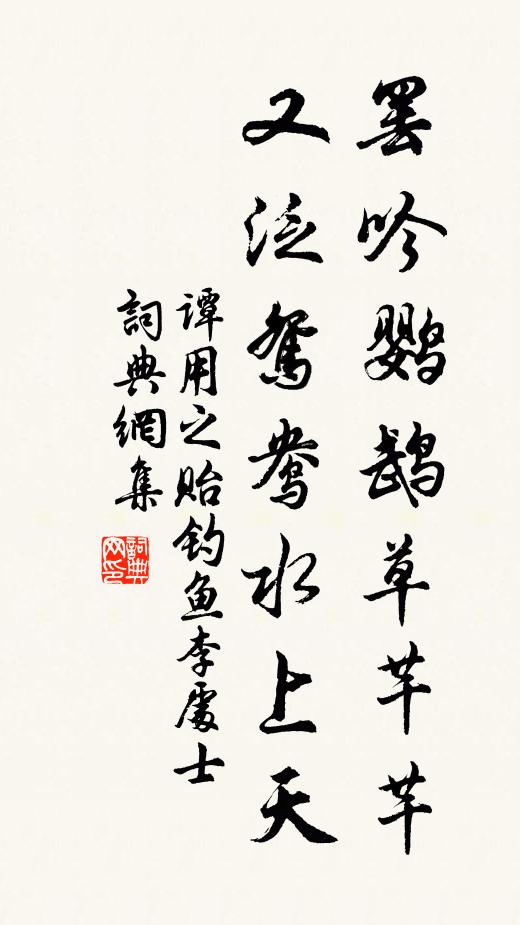 罢吟鹦鹉草芊芊
又泛鸳鸯水上天
谭用之贻钓鱼李處士
詞典網集
詞典
网印